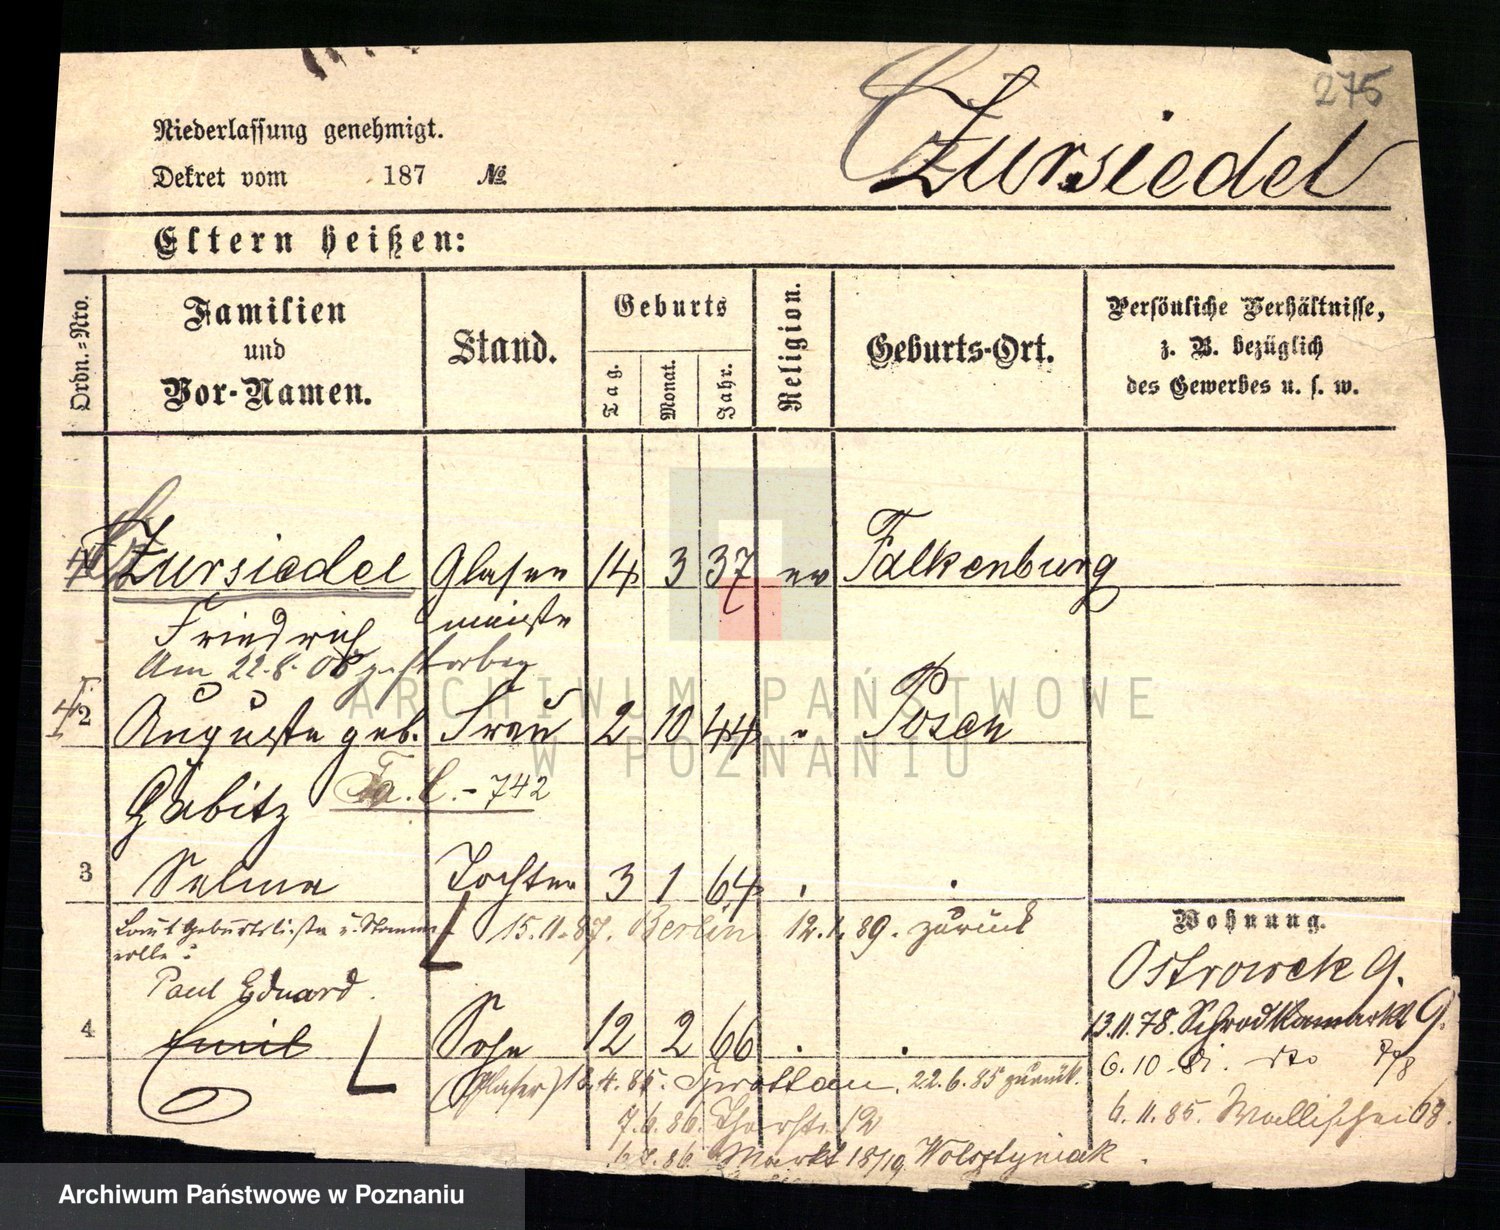 275
Niederlassung genehmigt.
Dekret vom 187 №
Zursiedel
Eltern heißen:
Ordn.=Nro.
Familien
und
Vor-Namen.
Stand.
Geburts
Tag.
Monat.
Jahr.
Religion.
Geburts-Ort.
Persönliche Verhältnisse,
z. B. bezüglich
des Gewerbes u. s. w.
1 Zursiedel Glaser 14 3 37 ev Falkenburg
Friedrich meister
Am 22.8.08 gestorben
ARCHIWUM PAŃSTWOWE
2 Auguste geb. Frau 2 10 44 " Posen
W POZNANIU
Gäbitz 742
3 Selma Tochter 3 1 64
Laut Geburtsliste u. Stamm
rolle:
15.11.87. Berlin 12.1.89. zurück
Wohnung.
Ostrowek 9.
Paul Eduard.
13.11.78. Schrodkamarkt 9.
4 Emil Sohn 12 2 66
6.10. dto 7/8
(Glaser) 4.85. Sprottau 22.6.85 zurück.
6.11.85. Wallischei 68.
7.6.86. 12
86. Markt 18/19 Wolsztyniak
Archiwum Państwowe w Poznaniu